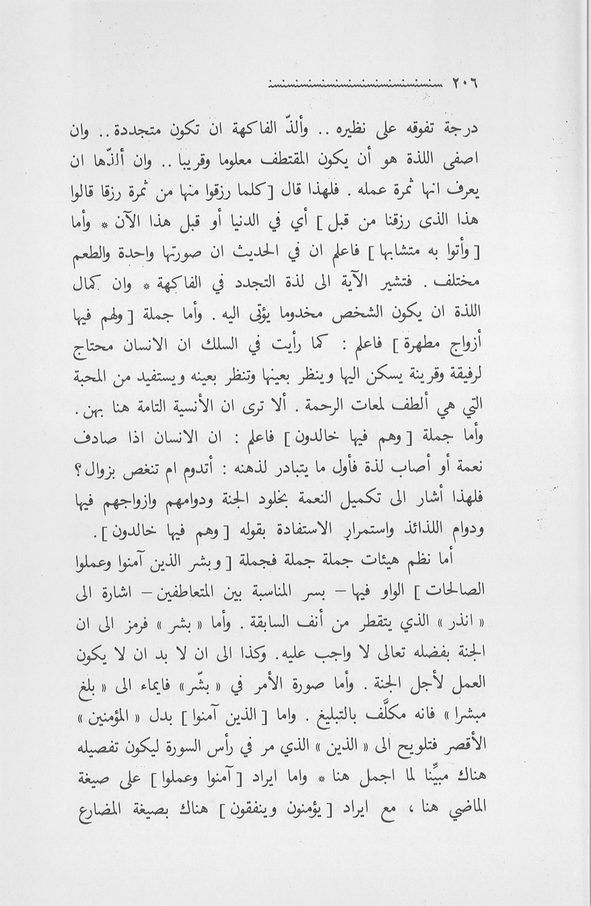 ٢٠٦
درجة تفوقه على نظيره .. وألذّ الفاكهة ان تكون متجددة .. وان
اصفى اللذة هو أن يكون المقتطف معلوما وقريبا .. وان ألذّها ان
يعرف انها ثمرة عمله . فلهذا قال [ كلما رزقوا منها من ثمرة رزقا قالوا
هذا الذى رزقنا من قبل ] أي في الدنيا أو قبل هذا الآن * وأما
[ وأتوا به متشابها ] فاعلم ان في الحديث ان صورتها واحدة والطعم
مختلف . فتشير الآية الى لذة التجدد في الفاكهة * وان كمال
اللذة ان يكون الشخص مخدوما يؤتى اليه . وأما جملة [ ولهم فيها
أزواج مطهرة ] فاعلم : كما رأيت في السلك ان الانسان محتاج
لرفيقة وقرينة يسكن اليها وينظر بعينها وتنظر بعينه ويستفيد من المحبة
التي هي ألطف لمعات الرحمة . ألا ترى ان الأنسية التامة هنا بهن .
وأما جملة [ وهم فيها خالدون ] فاعلم : ان الانسان اذا صادف
نعمة أو أصاب لذة فأول ما يتبادر لذهنه : أتدوم ام تنغص بزوال ؟
فلهذا أشار الى تكميل النعمة بخلود الجنة ودوامهم وازواجهم فيها
ودوام اللذائذ واستمرار الاستفادة بقوله [ وهم فيها خالدون ] .
أما نظم هيئات جملة جملة فجملة [ وبشر الذين آمنوا وعملوا
الصالحات ] الواو فيها – بسر المناسبة بين المتعاطفين – اشارة الى
« انذر » الذي يتقطر من أنف السابقة . وأما « بشر » فرمز الى ان
الجنة بفضله تعالى لا واجب عليه . وكذا الى ان لا بد ان لا يكون
العمل لأجل الجنة . وأما صورة الأمر في « بشّر » فايماء الى « بلغ
مبشرا » فانه مكلَّف بالتبليغ . واما [ الذين آمنوا ] بدل « المؤمنين »
الأقصر فتلويح الى « الذين » الذي مر في رأس السورة ليكون تفصيله
هناك مبيِّنا لما اجمل هنا * واما ايراد [ آمنوا وعملوا ] على صيغة
الماضي هنا ، مع ايراد [ يؤمنون وينفقون ] هناك بصيغة المضارع